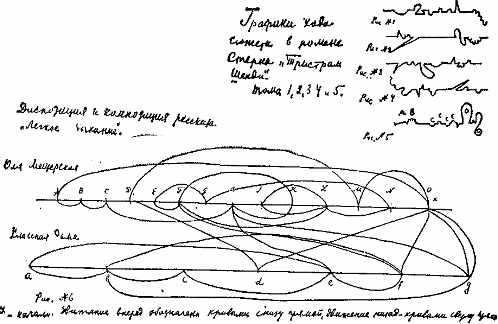 Графики хода
сюжета в романе
Стерна "Тристрам
Шенди"
тома 1, 2, 3 4 и 5.
Рис №1
Рис №2
Рис. №3
Рис. №4
A B
c c c c
Рис. №5
Диспозиция и композиция рассказа
"Легкое дыхание".
Оля Мещерская
A B C D E F G H J K L M N O
x
Классная дама
a b c d e f g
Рис. №6
X - начало. Движение вперед обозначены кривыми снизу прямой, движение назад - кривыми сверху